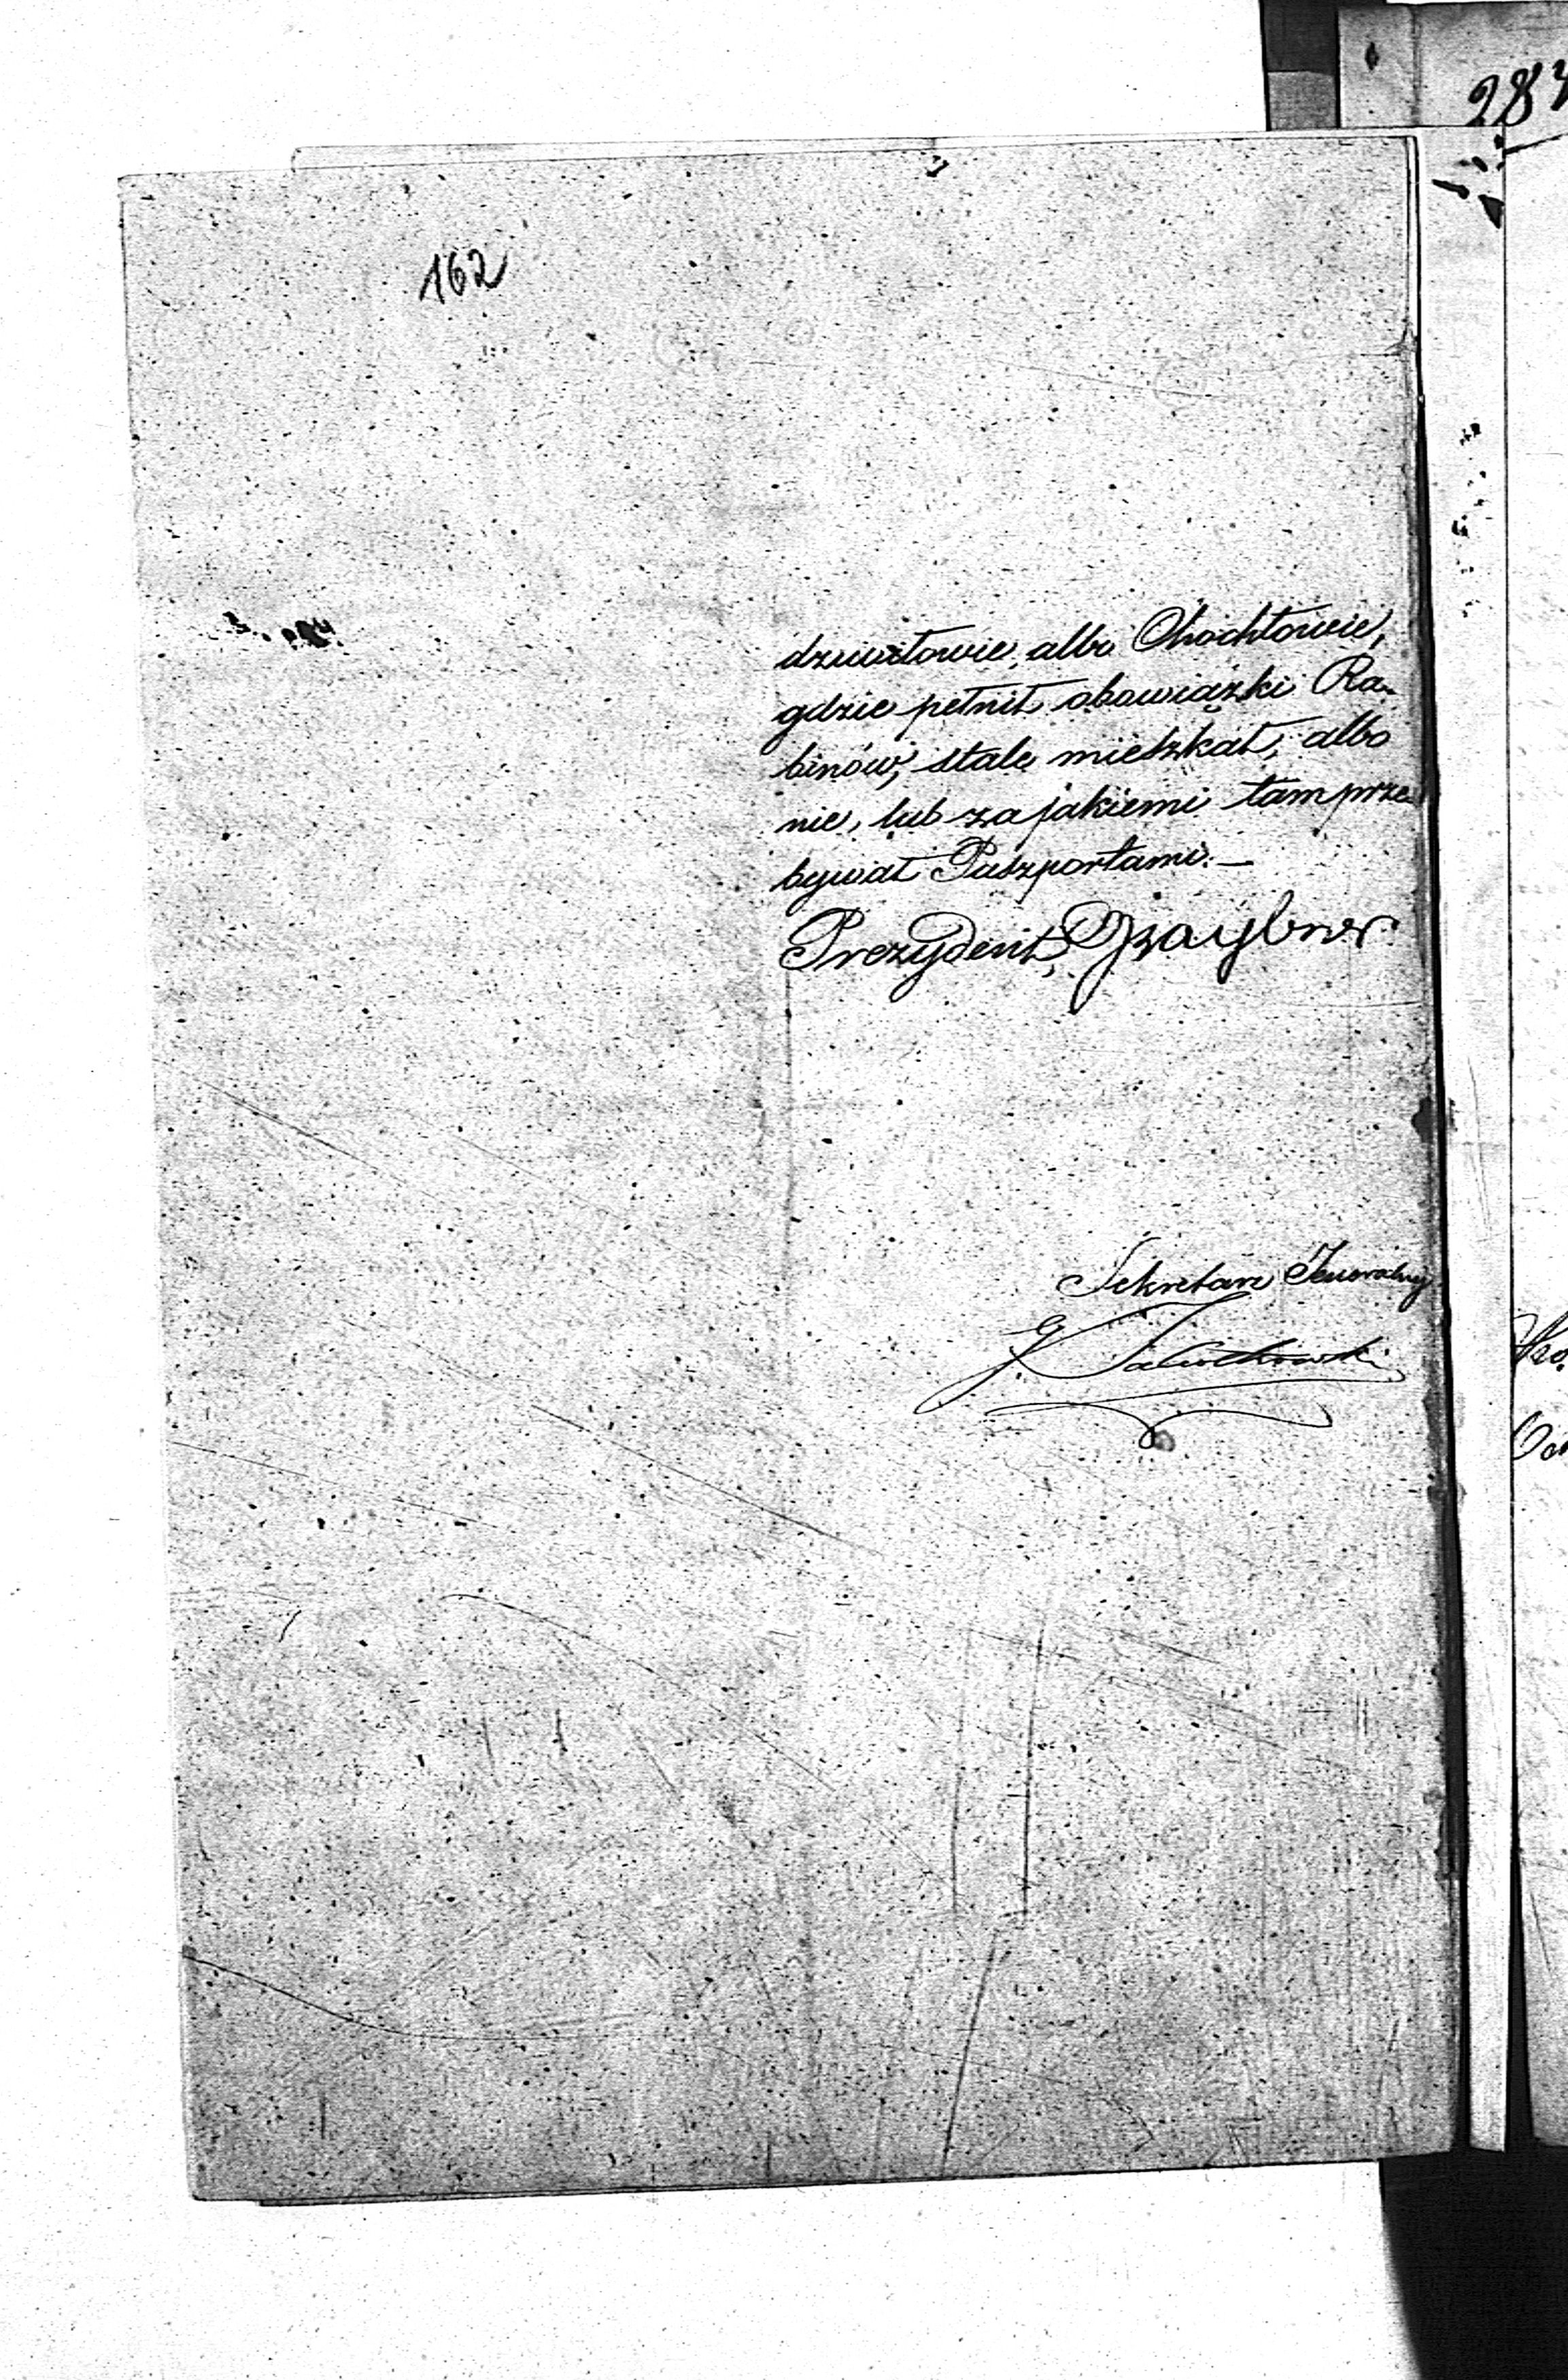 162
dziwiłowie, albo Chochłowie,
gdzie pełnił obowiązki Ra-
binów, stale mieszkał, albo
nie, lub za jakiemi tam prze-
bywał Paszportami. —
Prezydent, Graybner
Sekretarz Jeneralny
G. Jakubowski